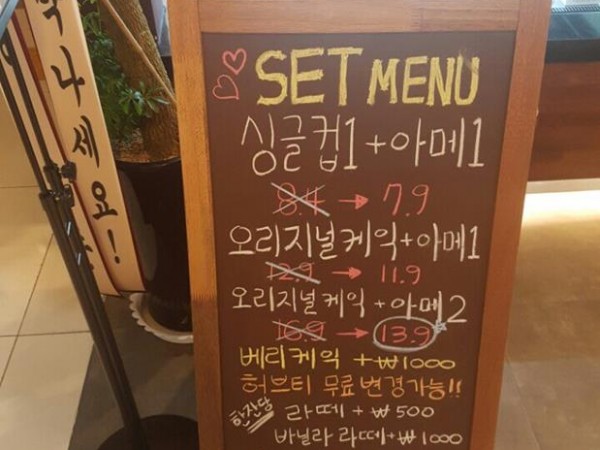 나세요!
SET MENU
싱글컵1+아메1
8.4 → 7.9
오리지널케익+아메1
12.9 → 11.9
오리지널케익+아메2
16.9 → 13.9
베리케익 +₩1000
허브티 무료변경가능!!
한잔당 라떼+₩500
바닐라 라떼+₩1000